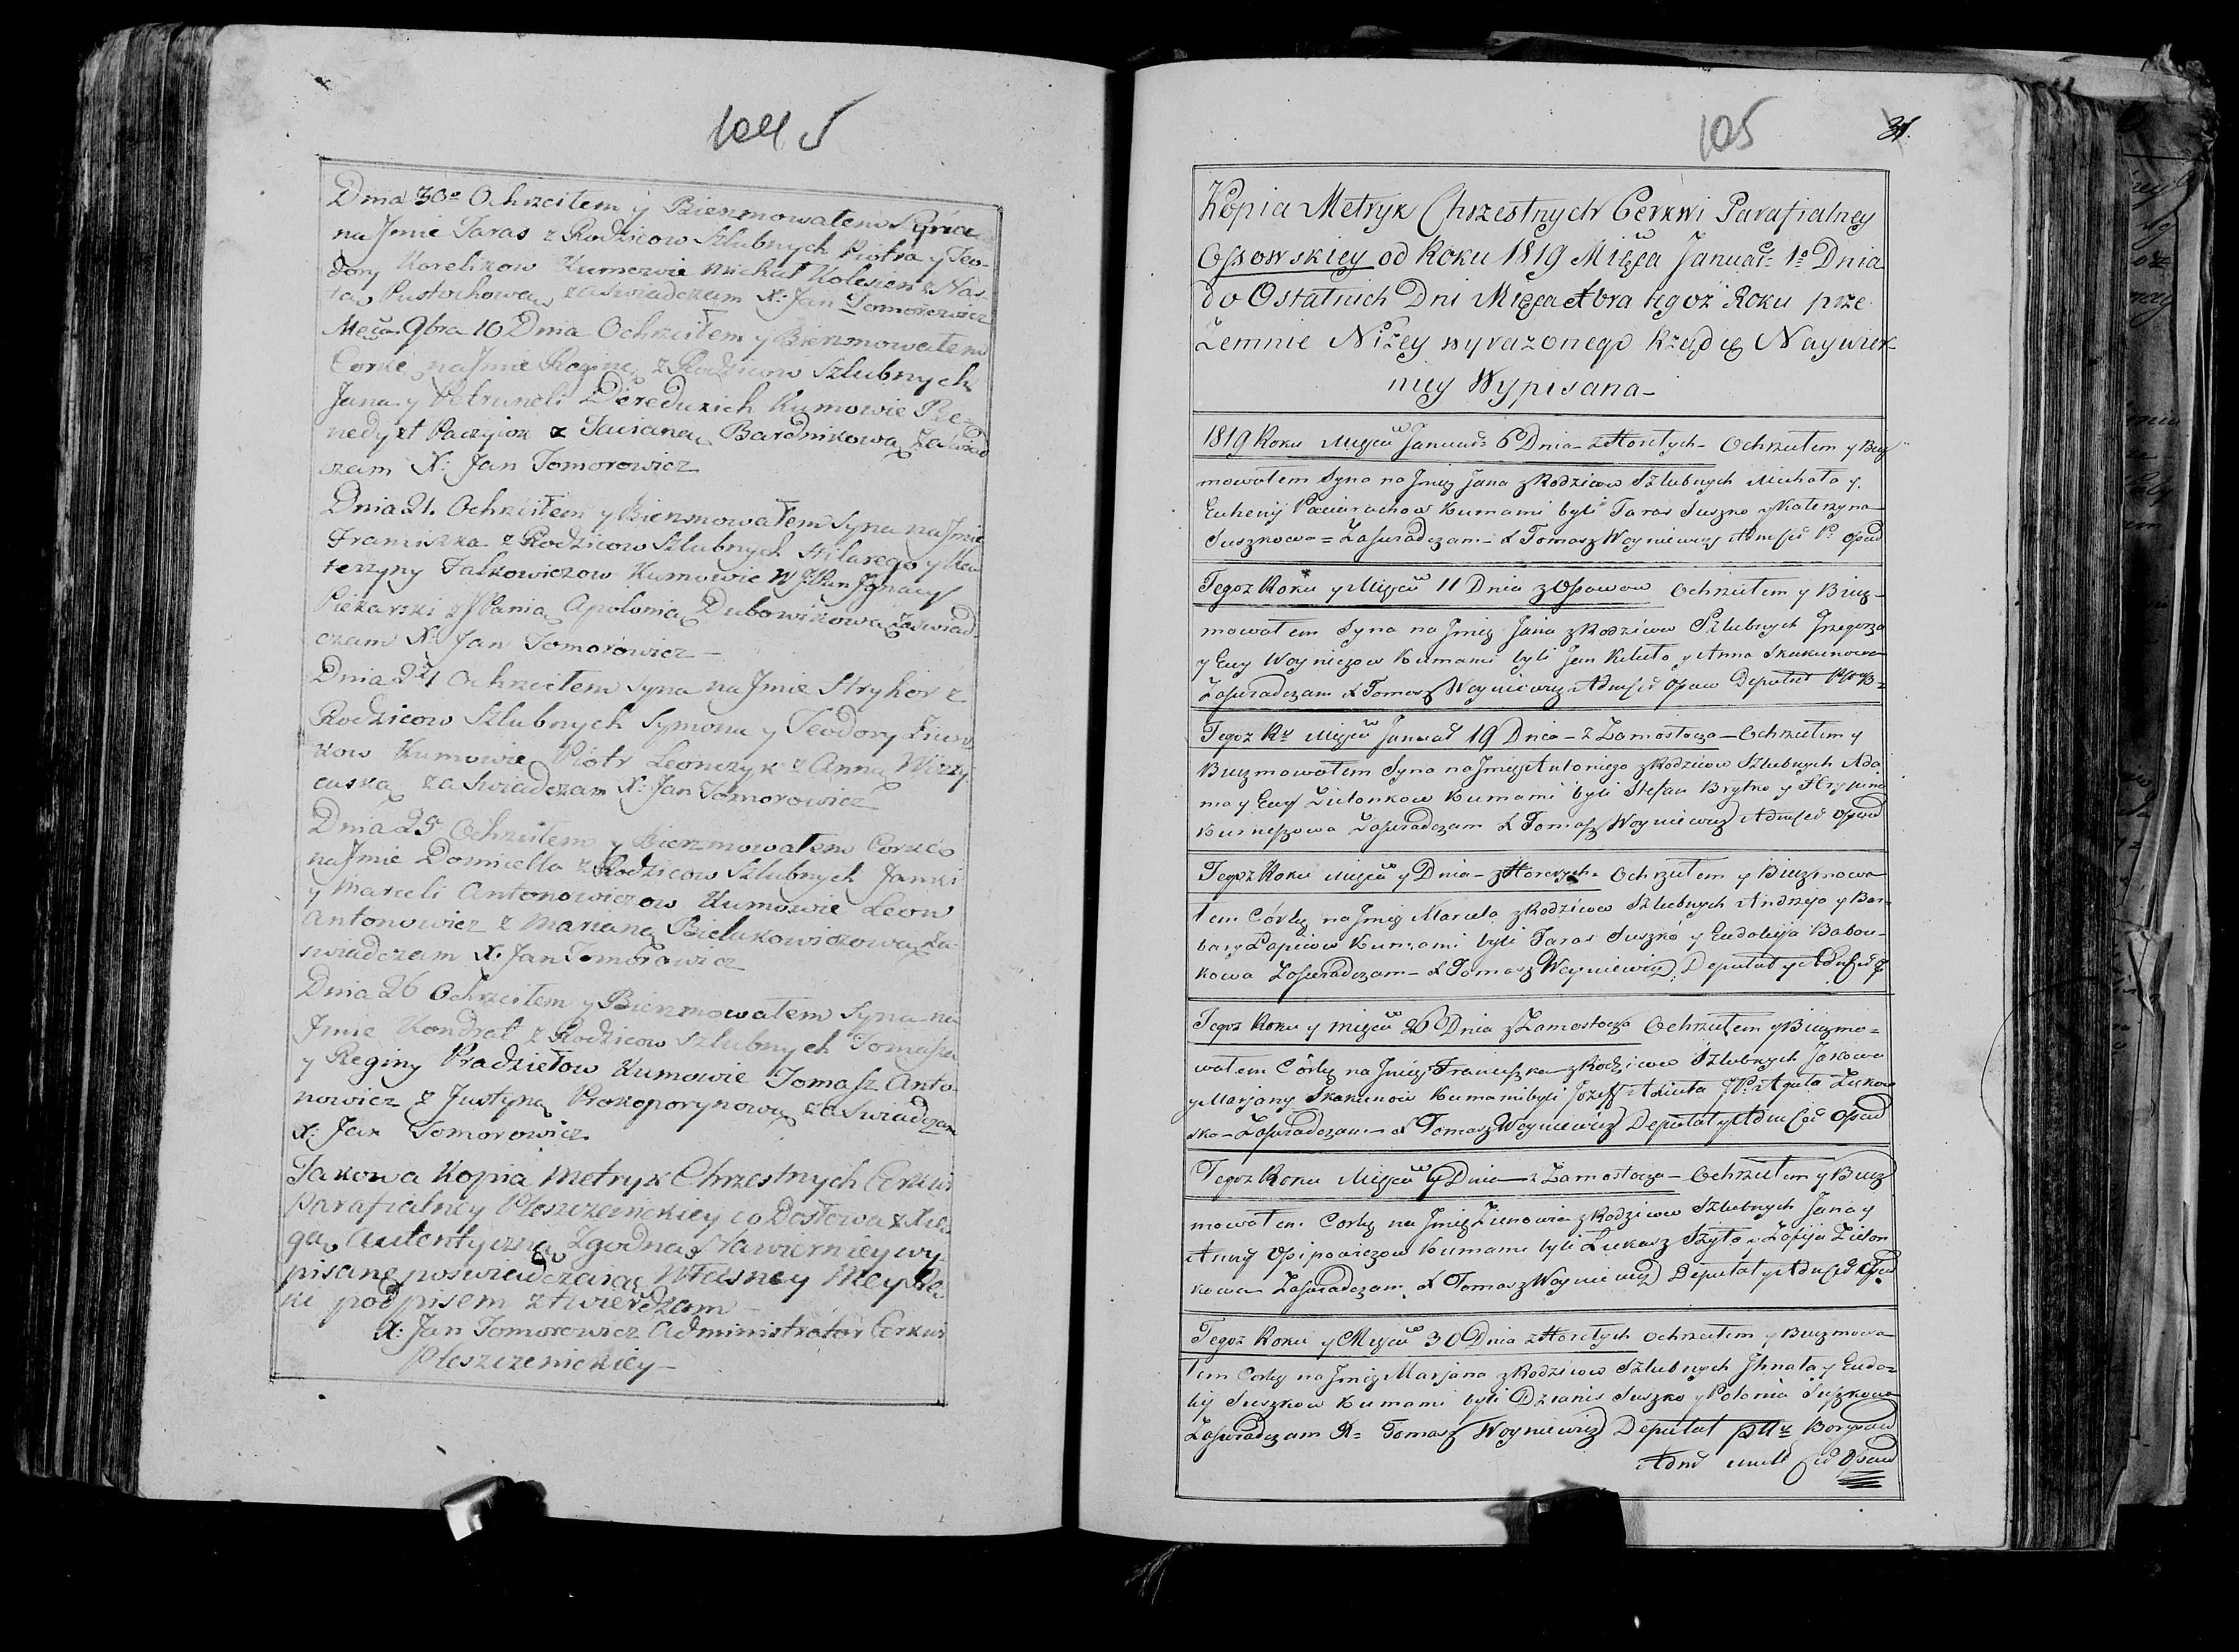 104 5
Dnia 30º Ochrzciłem y Bierzmowałem Syna
na Jmie Taras z Rodzicow Szlubnych Piotra y Teo-
dory Korelikow Kumowie Michał Kolesien z Nas-
tą Pustuchową zaswiadczam X: Jan Tomorowicz
9bra 10 Dnia Ochrzciłem y Bierzmowałem
Corkę na Jmie Regine z Rodzicow Szlubnych
Jana y Petruneli Kumowie Be-
nedykt z Taciana Bardnikową Zaświad
czam X: Jan Tomorowicz
Dnia 21. Ochrzciłem y Bierzmowałem Syna na Jmie
Franciszka z Rodzicow Szlubnych Hilarego y Ka
terzyny Falkowiczow Kumowie W JPan Jgnacy
Piekarski z JPanią Apolonią Dubowikową Zaswiad
czam X: Jan Tomorowicz —
Dnia 24 Ochrzciłem Syna na Jmie Stryhor z
Rodzicow Szlubnych Symona y Teodory
kow Kumowie Piotr Leonczyk z Anną
zaswiadczam X: Jan Tomorowicz
Dnia 25 Ochrzciłem y Bierzmowałem Corkę
na Jmie Domicella z Rodzicow Szlubnych Janki
y Marceli Antonowiczow Kumowie Leon
Antonowicz z Marianą Bielakowiczową Za-
swiadczam X: Jan Tomorowicz
Dnia 26 Ochrzciłem y Bierzmowałem Syna na
Jmie Kondrat z Rodzicow Szlubnych Tomasza
y Reginy Pradziełow Kumowie Tomasz Anto-
nowicz z Justyną Prokoporynową zaswiadczam
X: Jan Tomorowicz
Takowa Kopia Metryk Chrzestnych Cerkwi
Parafialney Pleszczenickiey co Dosłowa z Xie
gą Autentyczną Zgodna Nawierniey wy
pisane poswiadczaiąc Własney Mey Rę
ki podpisem ztwierdzam
X: Jan Tomorowicz Administrator Cerkwi
Pleszczenickiey —
105 31.
Kopia Metryk Chrzestnych Cerkwi Parafialney
Ossowskiey od Roku 1819 Mięsca Januar: 1º Dnia
do Ostatnich Dni Mięsca Xbra tegoż Roku prze
Zemnie Niżey wyrazonego Nawier
niey Wypisana —
1819 Roku Mięsca Januar 6 Dnia - z Horełych - Ochrzciłem y Bierz
mowałem Syna na Jmię Jana z Rodzicow Szlubnych Michała y
Euhenij Kumami byli Taras Suszko y Katerzyna
Suszkowa = Zaswiadczam - X Tomasz Woyniewicz
Tegoz Roku y Mięsca 11 Dnia z Ossowow Ochrzciłem y Bierz-
mowałem Syna na Jmię Jana z Rodzicow Szlubnych Grzegorza
y Ewy Woyniczow Kumami byli Jan y Anna Skakunowa
Zaswiadczam X Tomasz Woyniewicz Deputat
Tegoz Rº Mięsca Januar 19 Dnia - z Zamostocza - Ochrzciłem y
Bierzmowałem Syna na Jmię Antoniego z Rodzicow Szlubnych Ada
ma y Ewy Zielonkow Kumami byli Stefan Brytko y
Zaswiadczam X Tomasz Woyniewicz
Tegoz Roku Mięsca y Dnia - z Horełych - Ochrzciłem y Bierzmowa
łem Córkę na Jmię Marcela z Rodzicow Szlubnych Andrzeja y Bar-
bary Łapiow Kumami byli Taras Suszko y Eudokija Babou-
kowa Zaswiadczam - X Tomasz Woyniewicz Deputat
Tegoz Roku y Mięsca 26 Dnia z Zamostocza Ochrzciłem y Bierzmo=
wałem Córkę na Jmię Franciszka z Rodzicow Szlubnych Jakowa
y Marjany Skakunow Kumami byli Jozef y Agata
ska - Zaswiadczam - X Tomasz Woyniewicz Deputat
Tegoz Roku Mięsca y Dnia - z Zamostocza - Ochrzciłem y Bierz
mowałem Corkę na Jmię Zienowia z Rodzicow Szlubnych Jana y
Anny Osipowiczow Kumami byli Łukasz Szyło y Zofija Zielon
kowa Zaswiadczam X Tomasz Woyniewicz Deputat
Tegoz Roku y Mięsca 30 Dnia z Horełych Ochrzciłem y Bierzmowa
łem Corkę na Jmię Marjana z Rodzicow Szlubnych Jhnata y Eudo=
kij Suszkow Kumami byli Dzianis Suszko y Polonia Suszkowa
Zaswiadczam X= Tomasz Woyniewicz Deputat